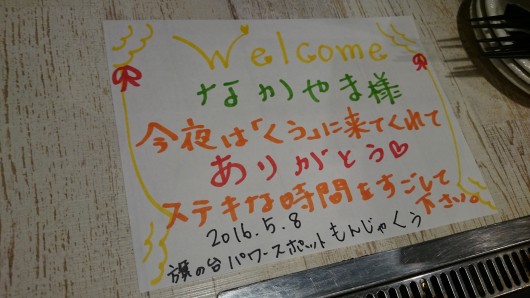 Welcome
なかやま様
今夜は「くう」に来てくれて
ありがとう♡
ステキな時間をすごして
下さい。
2016.5.8
旗の台パワースポットもんじゃくう